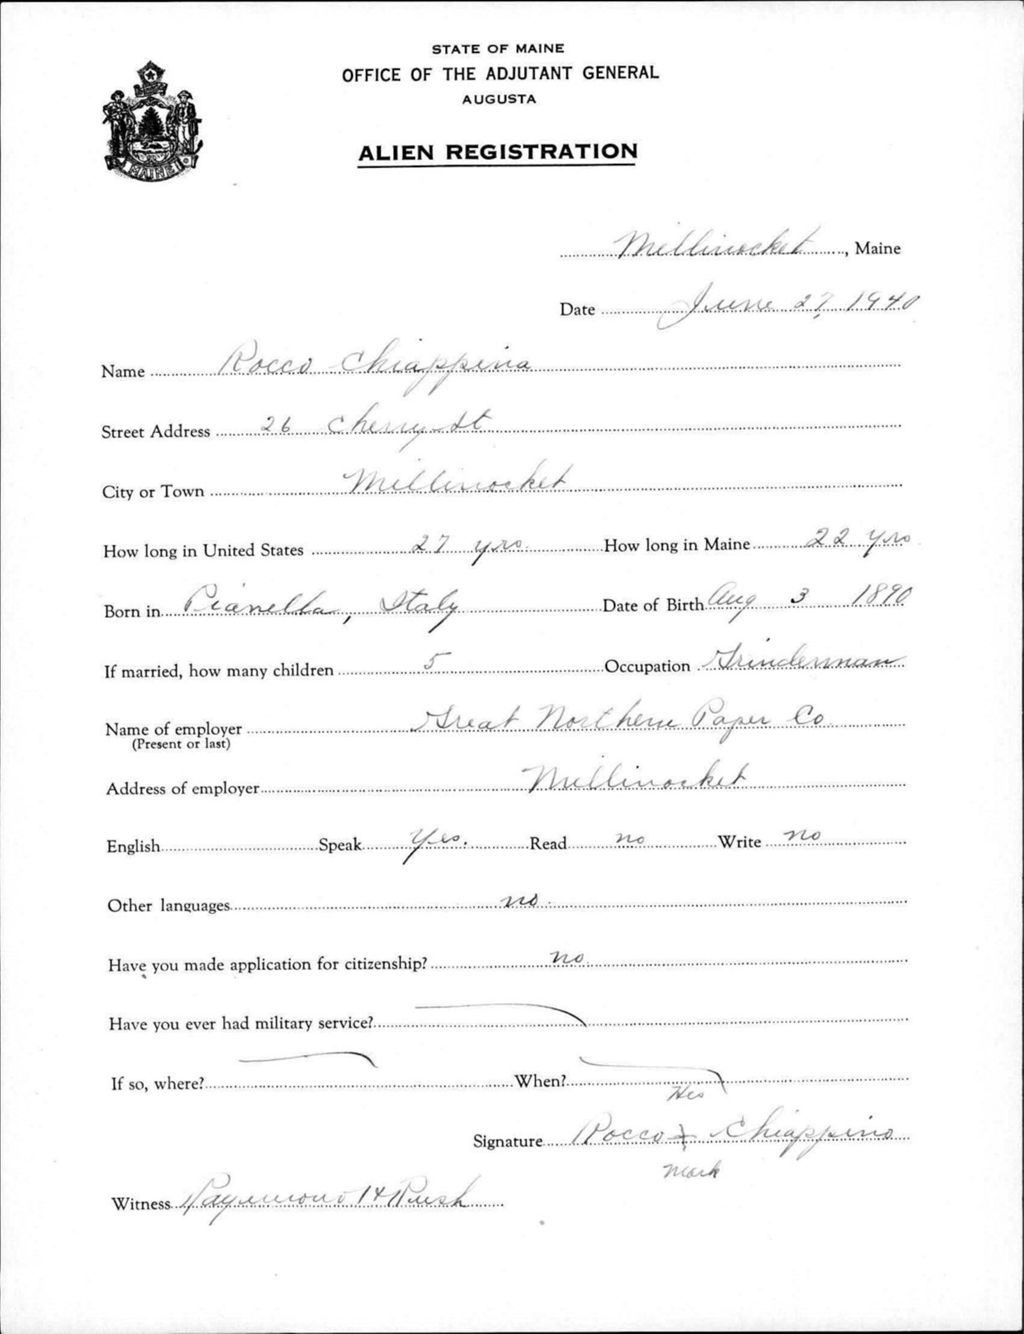 STATE OF MAINE
OFFICE OF THE ADJUTANT GENERAL
AUGUSTA
ALIEN REGISTRATION
MAINE
Millinocket, Maine
Date June 27, 1940
Name Rocco Chiappina
Street Address 26 Cherry St
City or Town Millinocket
How long in United States 27 yrs. How long in Maine 22 yrs
Born in Pianella, Italy Date of Birth Aug 3 1890
If married, how many children 5 Occupation Grinderman
Name of employer Great Northern Paper Co
(Present or last)
Address of employer Millinocket
English Speak Yes. Read no Write no
Other languages no.
Have you made application for citizenship? no
Have you ever had military service?
If so, where? When?
His
Signature Rocco X Chiappino
mark
Witness Raymond H Rush